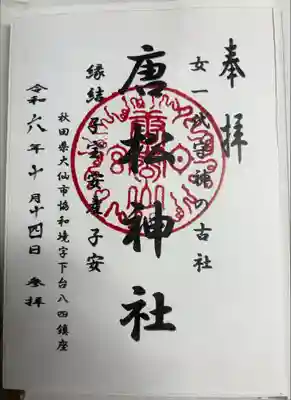 奉拝
女一代守神の古社
唐松神社
縁結子宝安産子安
秋田県大仙市協和境字下台八四鎮座
令和六年十月十四日 参拝